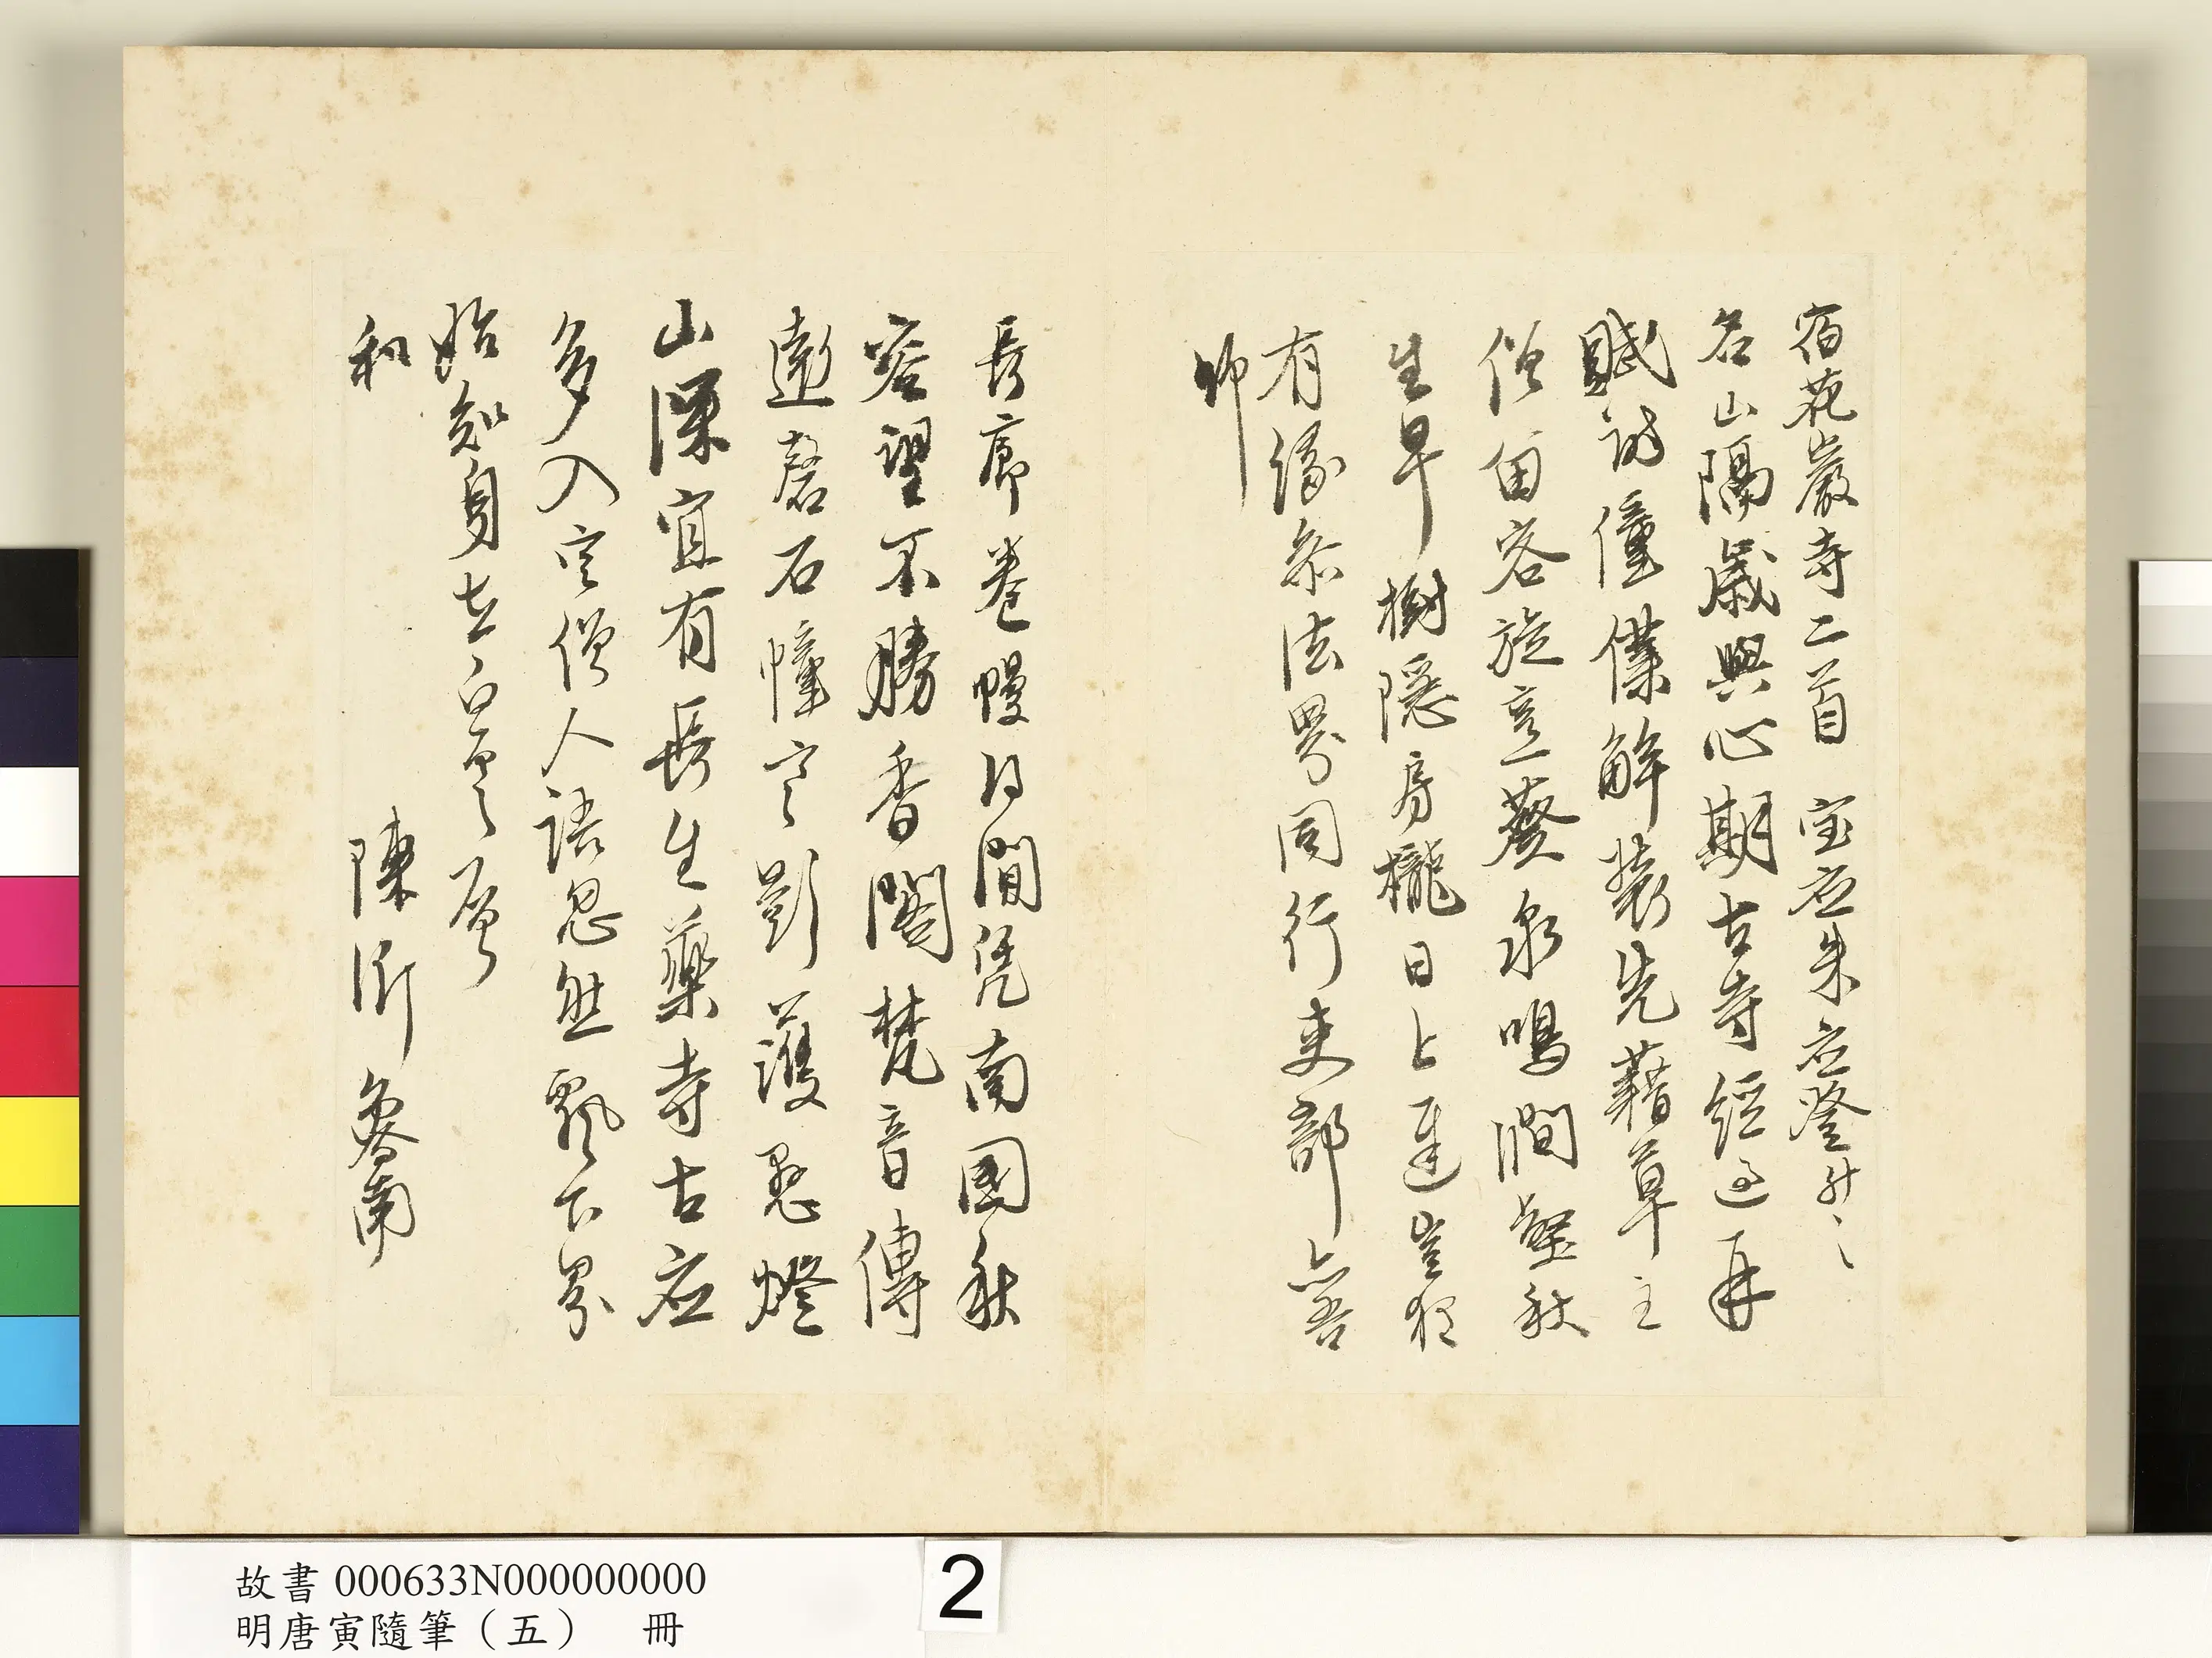 宿花巖寺二首 宝应朱应登升之
名山隔歲與心期古寺經過再
賦詩僮僕解裝先藉草主
僧留客旋烹葵泉鳴澗壑秋
生早樹隱房櫳日上遲豈獨
有緣参法界同行吏部亦吾
師
長廊卷幔日間凭南國秋
容望不勝香閣梵音傳
遠磬石幢寒影護懸燈
山深宜有長生藥寺古应
多入定僧人語忽然飄下界
始知身在白雲層
和 陳沂 魯南
故書000633N000000000
明唐寅隨筆（五） 冊
2